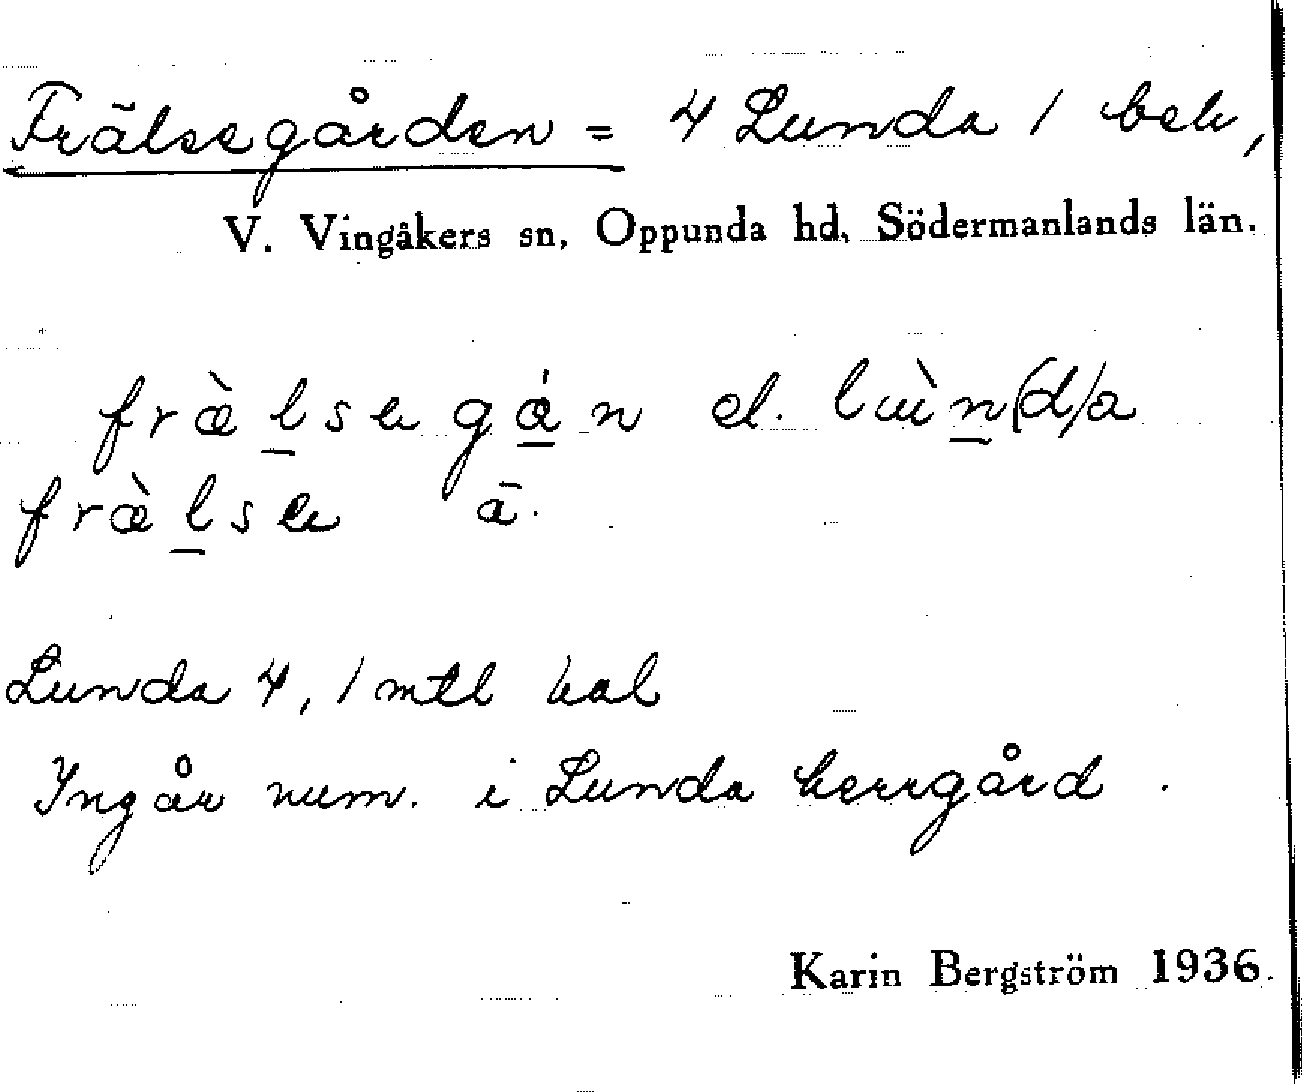 Frälsegården = 4 Lunda 1 beb,
V. Vingåkers sn, Oppunda hd, Södermanlands län.
fræ̀lsegɑ́n el. lùn(d)a
fræ̀lse ā.
Lunda 4, 1 mtl
Ingår num. i Lunda herrgård.
Karin Bergström 1936.